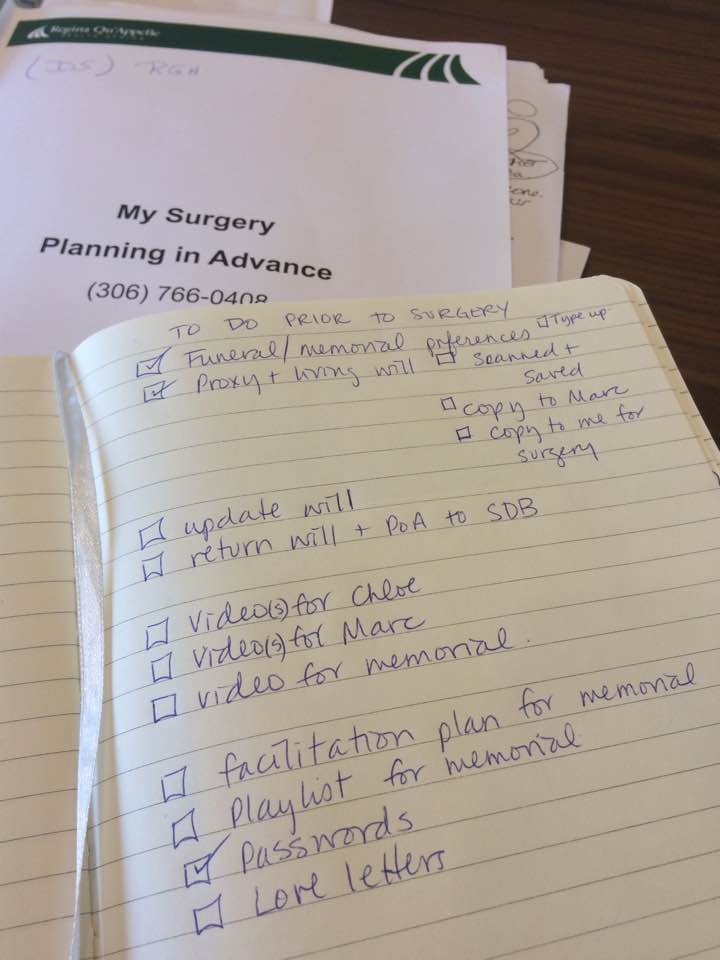 Regina Qu'Appelle
RGH
My Surgery
Planning in Advance
(306) 766-0408
TO DO PRIOR TO SURGERY
Funeral/memorial preferences
Type up
Proxy + living will
scanned +
saved
copy to Marc
copy to me for
surgery
update will
return will + PoA to SDB
video(s) for Chloe
video(s) for Marc
video for memorial.
facilitation plan for memorial
playlist for memorial
passwords
Love letters